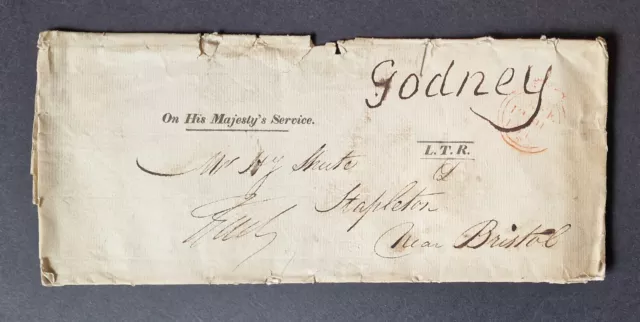 Godney
On His Majesty's Service.
L.T.R.
Mr Hy Shute
Stapleton
Near Bristol